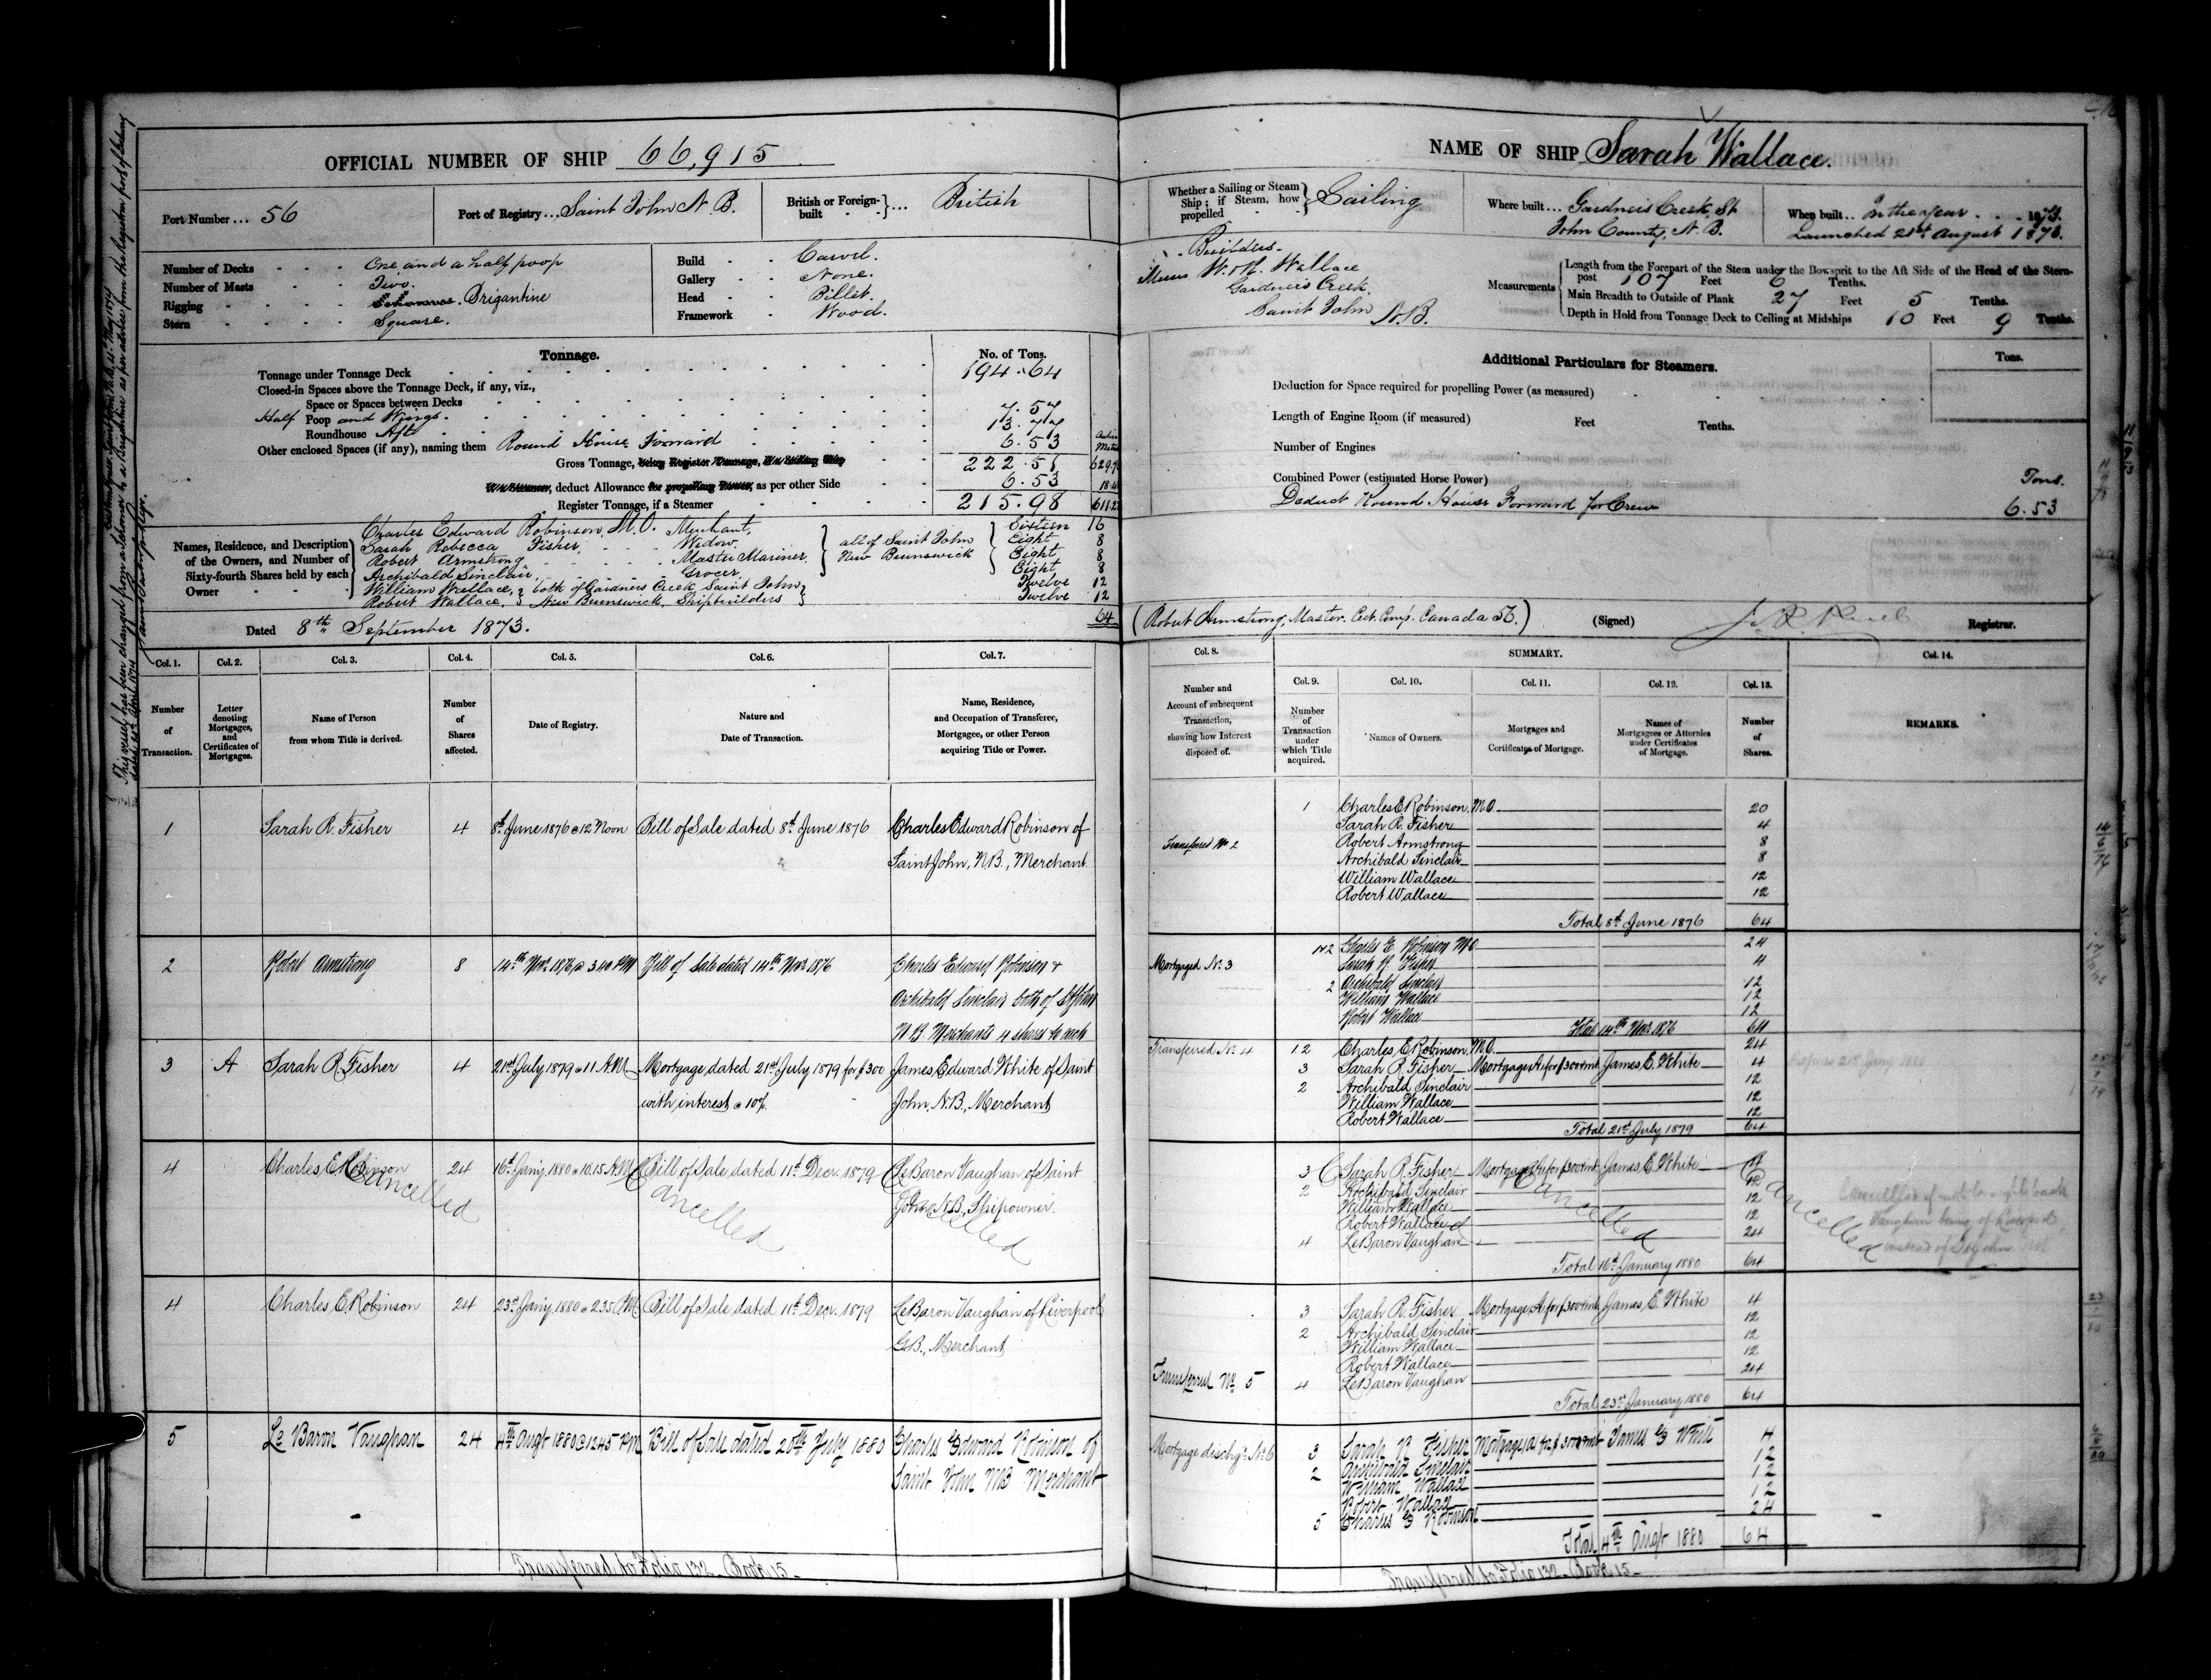 OFFICIAL NUMBER OF SHIP 66,915
Port Number ... 56
Port of Registry ... Saint John N.B.
British or Foreign-built ... British
Number of Decks One and a half poop
Number of Masts Two.
Rigging Schooner. Brigantine
Stern Square.
Build Carvel.
Gallery None.
Head Billet.
Framework Wood.
Tonnage.
No. of Tons.
Tonnage under Tonnage Deck 194.64
Closed-in Spaces above the Tonnage Deck, if any, viz.,
Space or Spaces between Decks
Half Poop and Wings. 7.57
Roundhouse Aft 13.77
Other enclosed Spaces (if any), naming them Round House Forward 6.53
Gross Tonnage, being Register Tonnage, if a Sailing Ship 222.51
if a Steamer, deduct Allowance for propelling Power, as per other Side 6.53
Register Tonnage, if a Steamer 215.98
Names, Residence, and Description of the Owners, and Number of Sixty-fourth Shares held by each Owner
Charles Edward Robinson, M.O. Merchant, Sixteen 16
Sarah Rebecca Fisher, Widow, Eight 8
Robert Armstrong Master Mariner Eight 8
Archibald Sinclair, Grocer, Eight 8
all of Saint John New Brunswick
William Wallace, Twelve 12
Robert Wallace, Twelve 12
both of Gardners Creek, Saint John New Brunswick, Shipbuilders
64
Dated 8th September 1873.
This vessel has been changed from a schooner to a Brigantine as per advice from the Registrar port of
dated 20th April 1874
Col. 1. Col. 2. Col. 3. Col. 4. Col. 5. Col. 6. Col. 7.
Number of Transaction.
Letter denoting Mortgages, and Certificates of Mortgages.
Name of Person from whom Title is derived.
Number of Shares affected.
Date of Registry.
Nature and Date of Transaction.
Name, Residence, and Occupation of Transferee, Mortgagee, or other Person acquiring Title or Power.
1 Sarah R. Fisher 4 8th June 1876 @ 12 Noon Bill of Sale dated 8th June 1876 Charles Edward Robinson of
Saint John, N.B., Merchant
2 Robert Armstrong 8 14th Novr 1876 @ 3.40 PM Bill of Sale dated 14th Novr 1876 Charles Edward Robinson &
Archibald Sinclair both of St John
N B Merchants 4 shares to each
3 A Sarah R Fisher 4 21st July 1879 @ 11 A.M. Mortgage dated 21st July 1879 for $300 James Edward White of Saint
with interest @ 10%. John, N.B., Merchant
4 Charles E Robinson 24 16th Jany 1880 @ 10.15 A.M. Bill of Sale dated 11th Decr. 1879 LeBaron Vaughan of Saint
John N.B., Shipowner.
Cancelled Cancelled Cancelled
4 Charles E. Robinson 24 23rd Jany 1880 @ 2.35 P.M. Bill of Sale dated 11th Decr. 1879 LeBaron Vaughan of Liverpool
G.B., Merchant
5 Le Baron Vaughan 24 4th Augt 1880 @ 12.45 PM Bill of Sale dated 20th July 1880 Charles Edward Robinson of
Saint John NB Merchant
Transferred to Folio 132 Book 15
NAME OF SHIP Sarah Wallace.
Whether a Sailing or Steam Ship; if Steam, how propelled Sailing
Where built ... Gardners Creek, St. John County, N.B.
When built ... In the year 1873.
Launched 21st August 1873.
Builders.
Messrs W. & R. Wallace
Gardners Creek,
Saint John
N.B.
Measurements
Length from the Forepart of the Stem under the Bowsprit to the Aft Side of the Head of the Stern-post 107 Feet 6 Tenths.
Main Breadth to Outside of Plank 27 Feet 5 Tenths.
Depth in Hold from Tonnage Deck to Ceiling at Midships 10 Feet 9 Tenths.
Additional Particulars for Steamers.
Tons.
Deduction for Space required for propelling Power (as measured)
Length of Engine Room (if measured) Feet Tenths.
Number of Engines
Combined Power (estimated Horse Power) Tons.
Deduct Round House Forward for Crew 6.53
(Robert Armstrong, Master. Cert. Comp. Canada 56.) (Signed) Registrar.
Col. 8. SUMMARY. Col. 14.
Col. 9. Col. 10. Col. 11. Col. 12. Col. 13.
Number and Account of subsequent Transaction, showing how Interest disposed of.
Number of Transaction under which Title acquired.
Names of Owners.
Mortgages and Certificates of Mortgage.
Names of Mortgagees or Attornies under Certificates of Mortgage.
Number of Shares.
REMARKS.
1 Charles E Robinson, M.O. 20
Sarah R. Fisher 4
Transferred No 2 Robert Armstrong 8
Archibald Sinclair 8
William Wallace 12
Robert Wallace 12
Total 8th June 1876 64
1&2 Charles E Robinson MO 24
Mortgaged No. 3 Sarah R Fisher 4
2 Archibald Sinclair 12
William Wallace 12
Robert Wallace 12
Total 14th Novr 1876 64
Transferred No. 4 1 2 Charles E Robinson, M.O. 24
3 Sarah R. Fisher Mortgage A for $300 & int. James E. White 4
2 Archibald Sinclair 12
William Wallace 12
Robert Wallace 12
Total 21st July 1879 64
3 Sarah R. Fisher Mortgage A for $300 & int. James E. White 4
2 Archibald Sinclair 12
William Wallace 12
Robert Wallace 12
4 LeBaron Vaughan 24
Total 16th January 1880 64
Cancelled Cancelled Cancelled
3 Sarah R. Fisher Mortgage A for $300 & int. James E. White 4
2 Archibald Sinclair 12
William Wallace 12
Robert Wallace 12
Transferred No 5 4 LeBaron Vaughan 24
Total 23rd January 1880 64
Mortgage dischgd. No. 6 3 Sarah R Fisher Mortgage A for $300 & int James E White 4
2 Archibald Sinclair 12
William Wallace 12
Robert Wallace 12
5 Charles E Robinson 24
Total 4th Augt 1880 64
Transferred to Folio 132 Book 15